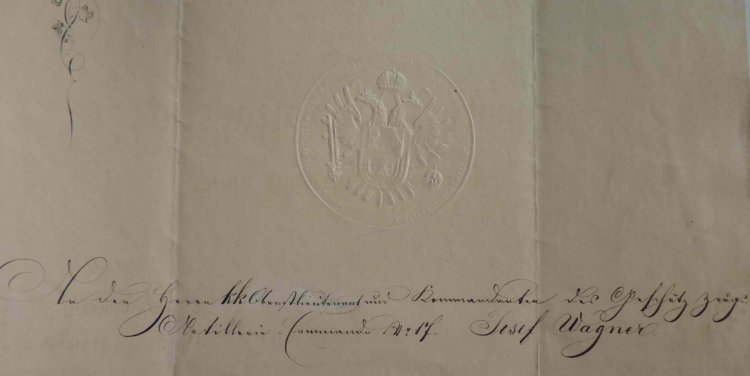 An den Herrn kk Oberstlieutenant und Kommandanten des Geschütz zeugs
Artillerie-Commando No 17. Josef Wagner.